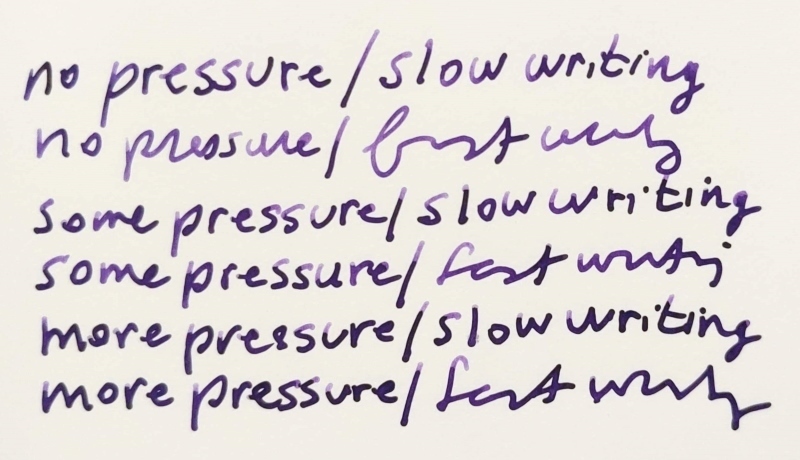 no pressure/slow writing
no pressure/fast writing
some pressure/slow writing
some pressure/fast writing
more pressure/slow writing
more pressure/fast writing